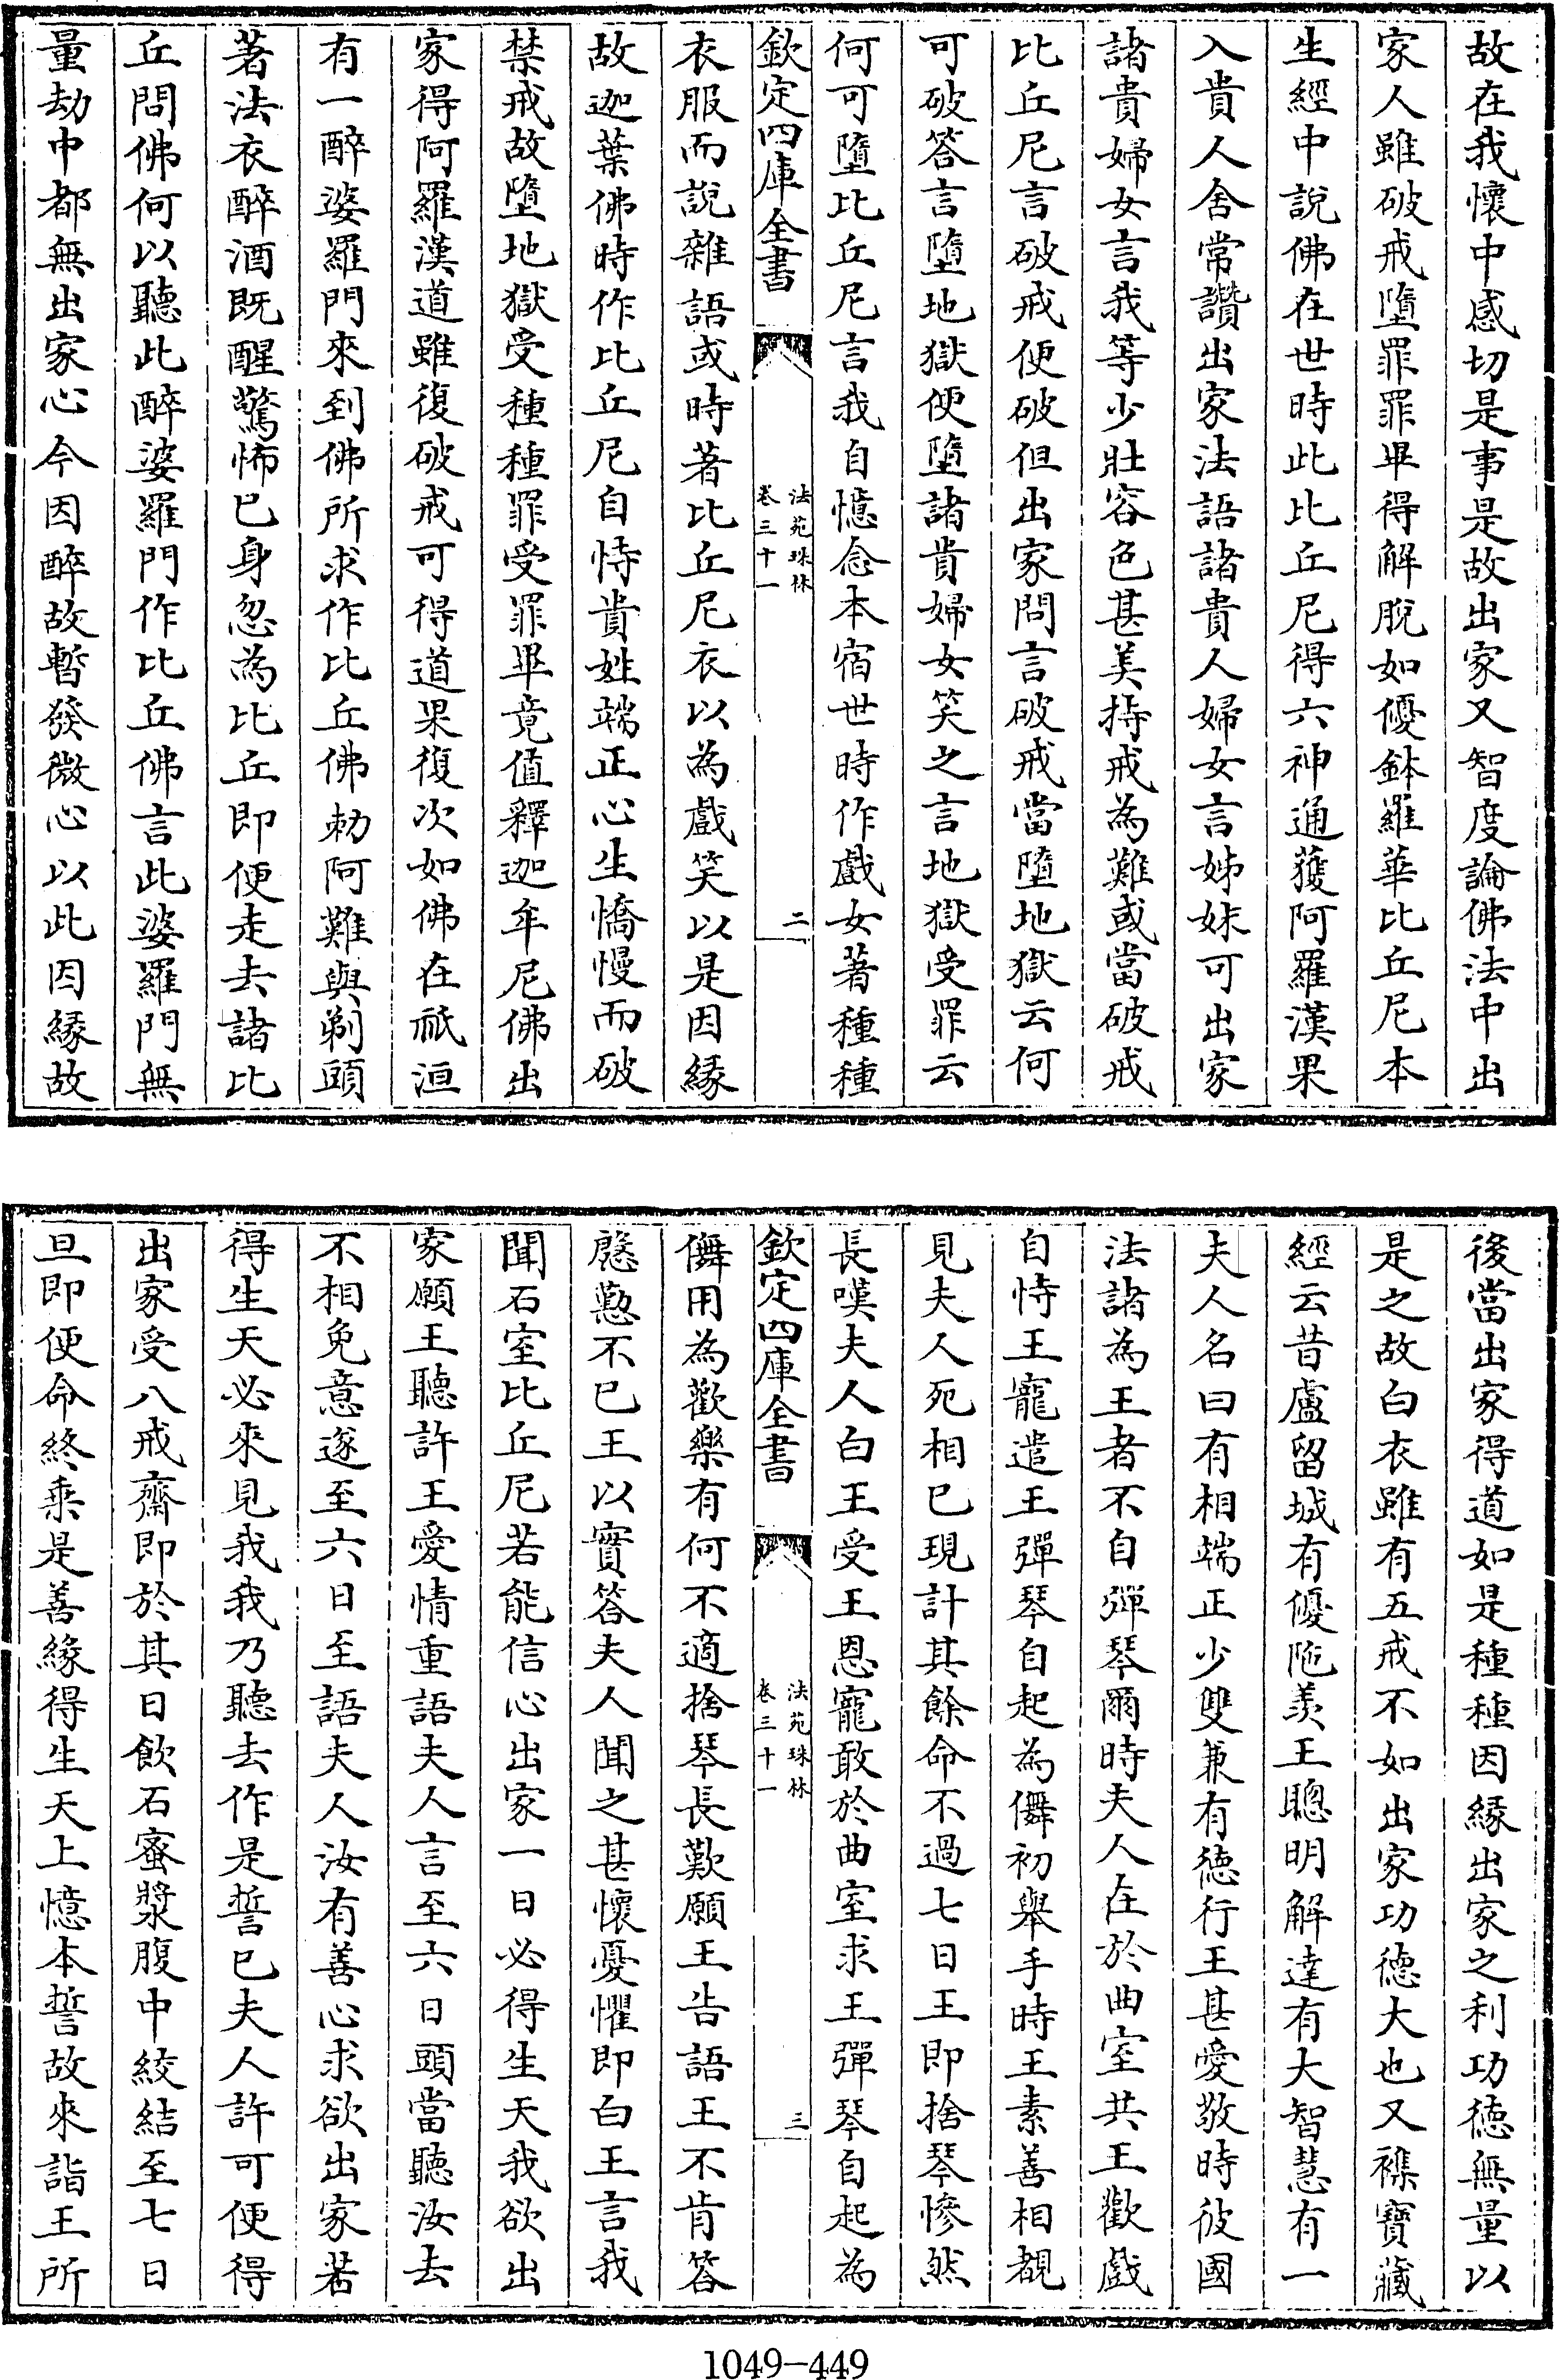 故在我懷中感切是事是故出家又智度論佛法中出
家人雖破戒墮罪罪畢得解脫如優鉢羅華比丘尼本
生經中說佛在世時此比丘尼得六神通獲阿羅漢果
入貴人舍常讚出家法語諸貴人婦女言姊妹可出家
諸貴婦女言我等少壯容色甚美持戒為難或當破戒
比丘尼言破戒便破但出家問言破戒當墮地獄云何
可破答言墮地獄便墮諸貴婦女笑之言地獄受罪云
何可墮比丘尼言我自憶念本宿世時作戲女著種種
欽定四庫全書
法苑珠林
卷三十一
二
衣服而說雜語或時著比丘尼衣以為戲笑以是因緣
故迦葉佛時作比丘尼自恃貴姓端正心生憍慢而破
禁戒故墮地獄受種種罪受罪畢竟值釋迦牟尼佛出
家得阿羅漢道雖復破戒可得道果復次如佛在祇洹
有一醉婆羅門來到佛所求作比丘佛勅阿難與剃頭
著法衣醉酒既醒驚怖已身忽為比丘即便走去諸比
丘問佛何以聽此醉婆羅門作比丘佛言此婆羅門無
量劫中都無出家心今因醉故暫發微心以此因緣故
後當出家得道如是種種因緣出家之利功德無量以
是之故白衣雖有五戒不如出家功德大也又襍寶藏
經云昔盧留城有優陁羡王聰明解達有大智慧有一
夫人名曰有相端正少雙兼有德行王甚愛敬時彼國
法諸為王者不自彈琴爾時夫人在於曲室共王歡戲
自恃王寵遣王彈琴自起為儛初舉手時王素善相覩
見夫人死相已現計其餘命不過七日王即捨琴慘然
長嘆夫人白王受王恩寵敢於曲室求王彈琴自起為
欽定四庫全書
法苑珠林
卷三十一
三
儛用為歡樂有何不適捨琴長歎願王告語王不肯答
慇懃不已王以實答夫人聞之甚懷憂懼即白王言我
聞石室比丘尼若能信心出家一日必得生天我欲出
家願王聽許王愛情重語夫人言至六日頭當聽汝去
不相免意遂至六日至語夫人汝有善心求欲出家若
得生天必來見我我乃聽去作是誓已夫人許可便得
出家受八戒齋即於其日飲石蜜漿腹中絞結至七日
旦即便命終乘是善緣得生天上憶本誓故來詣王所
1049-449